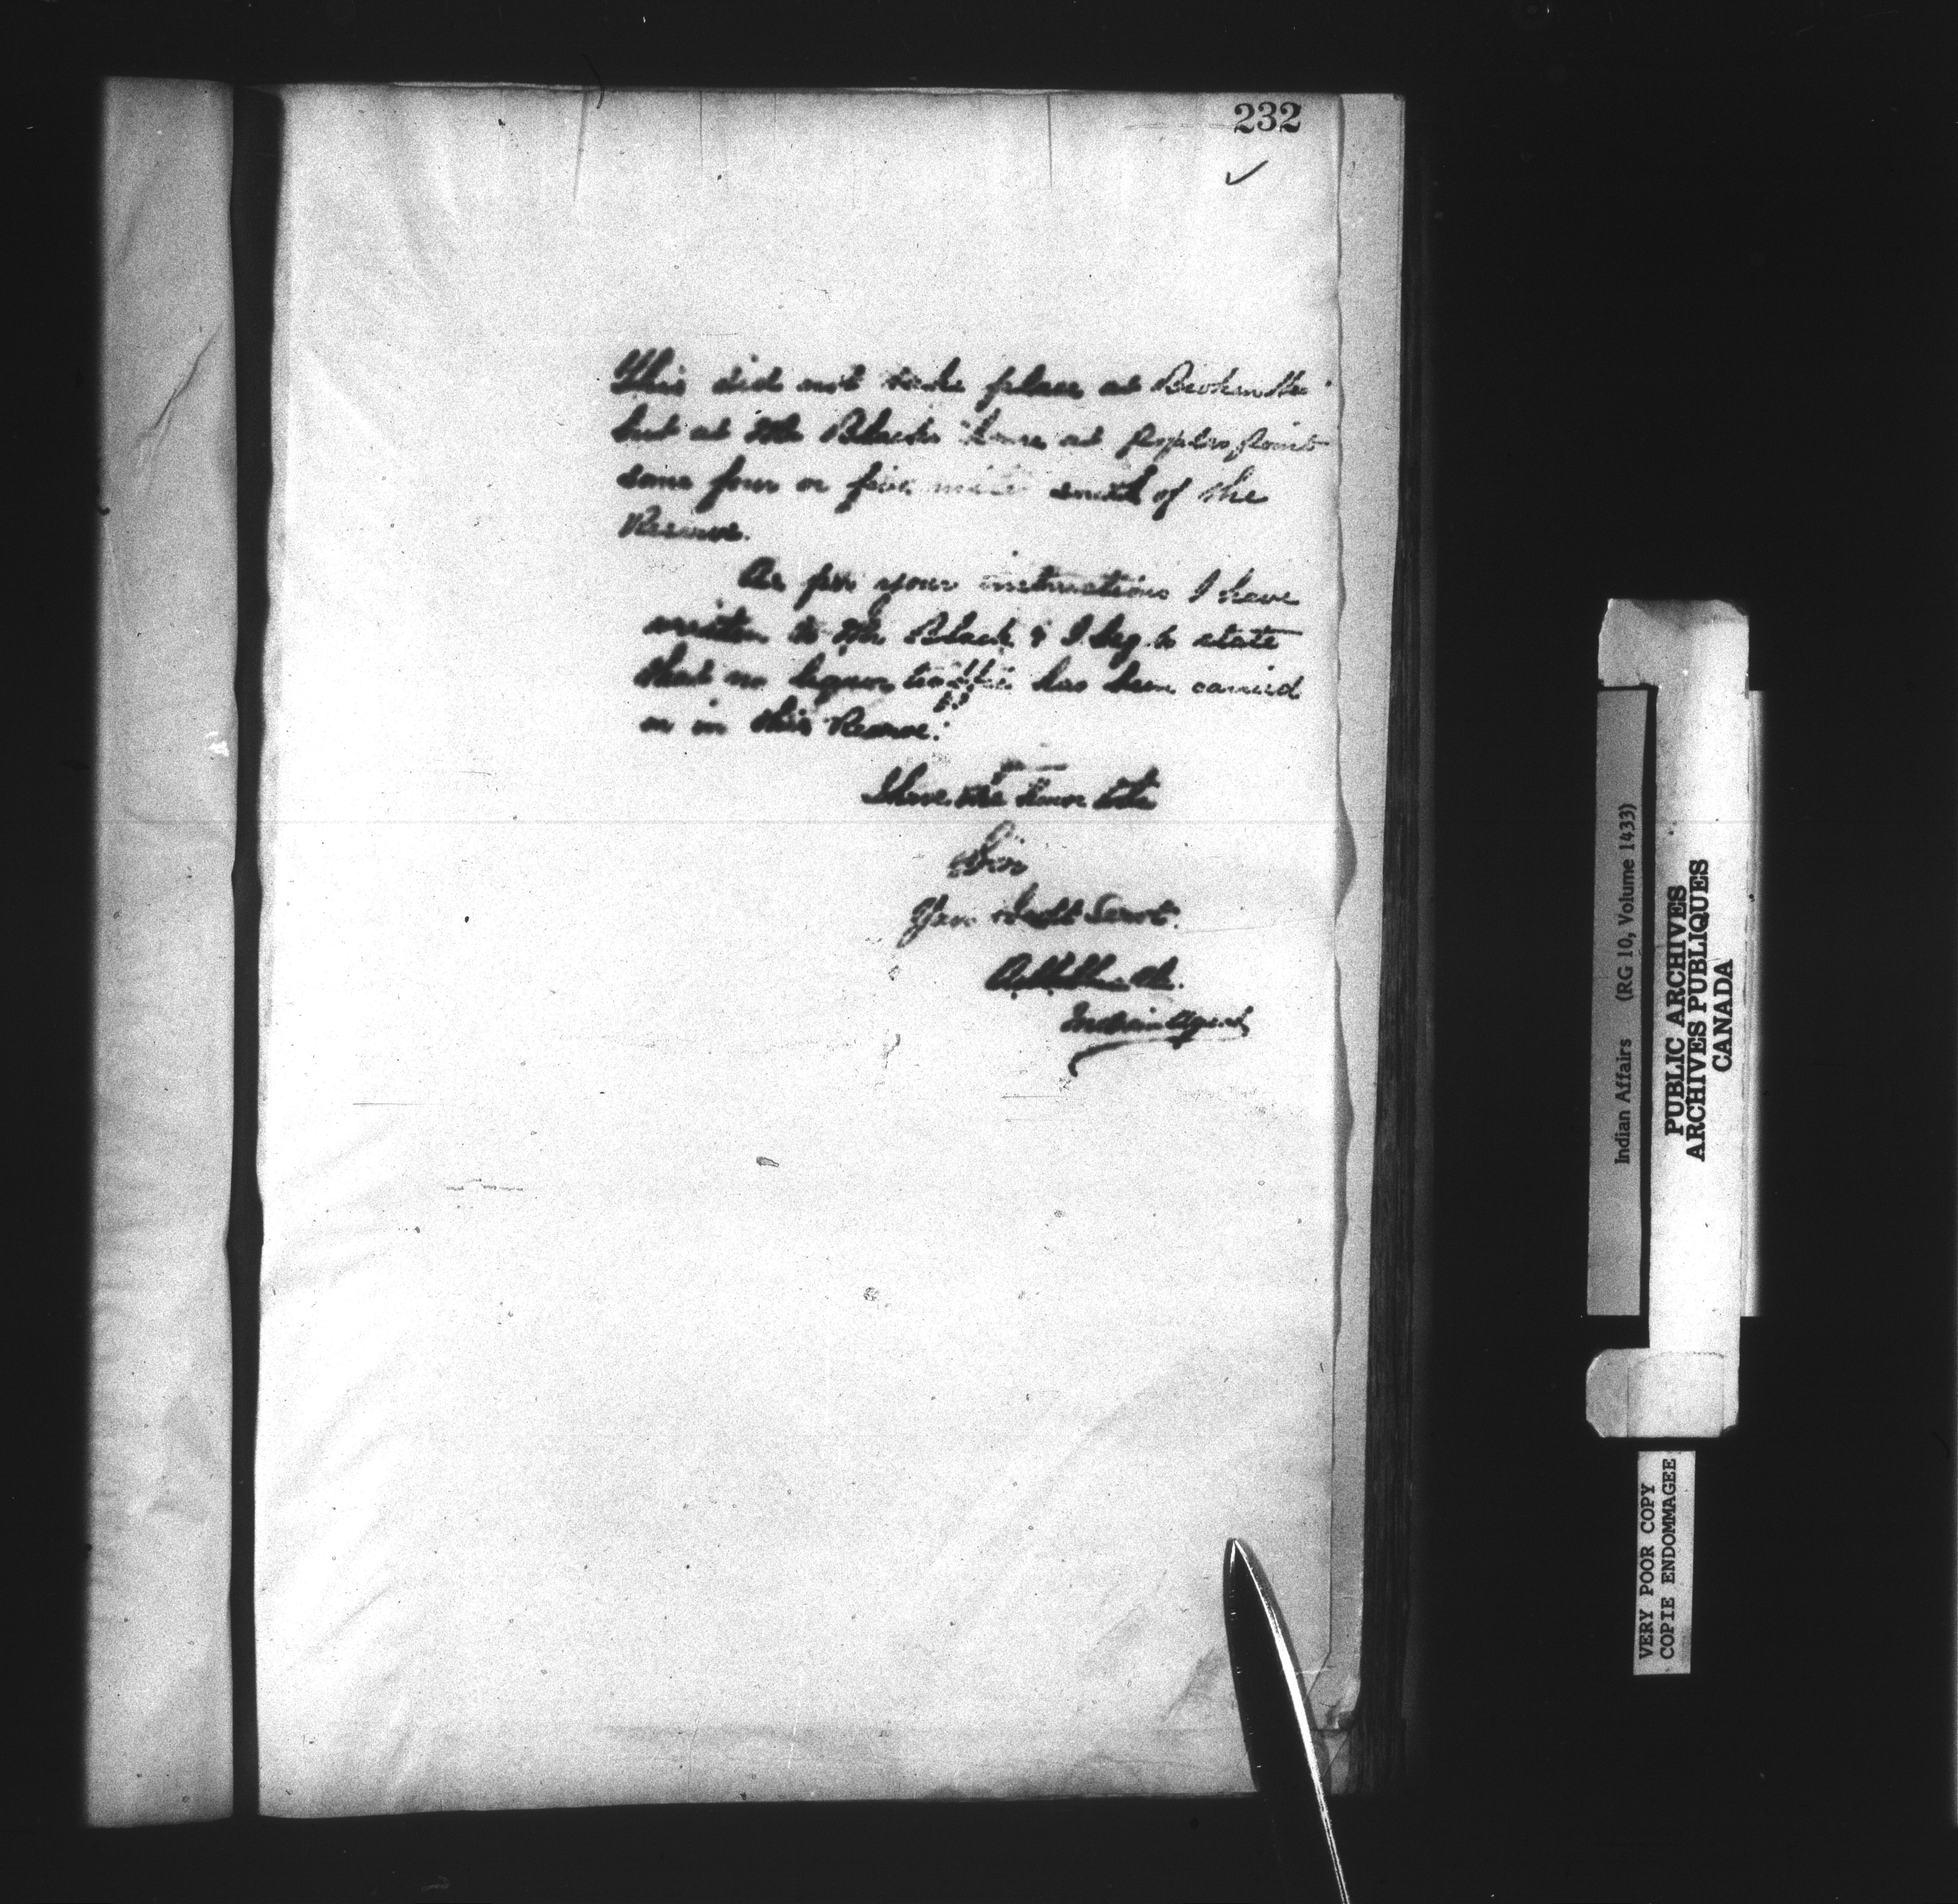 232
This did not take place at Brokenhd
but at Mr Black's house at Poplar Point
some four or five miles south of the
Reserve.
As per your instructions I have
written to Mr Black & I beg to state
that no liquor traffic has been carried
on in this Reserve.
I have the honor to be
Sir
Your Obedt Servt.
Indian Agent
Indian Affairs (RG 10, Volume 1433)
PUBLIC ARCHIVES
ARCHIVES PUBLIQUES
CANADA
VERY POOR COPY
COPIE ENDOMMAGEE